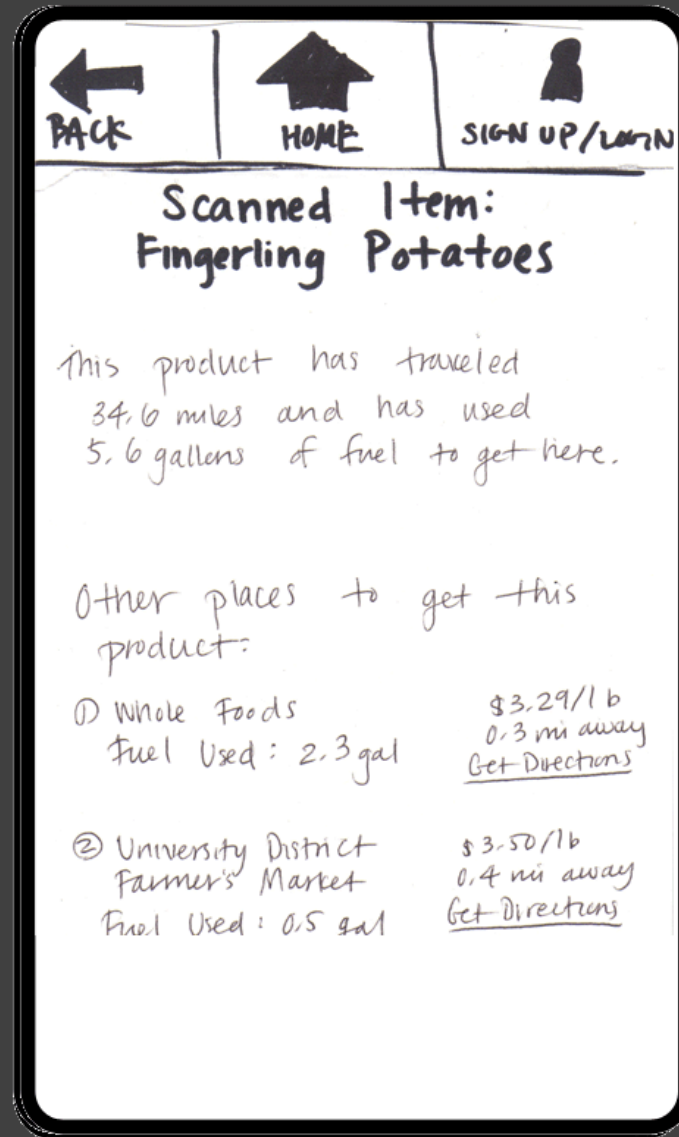 BACK
HOME
SIGN UP/LOGIN
Scanned Item:
Fingerling Potatoes
This product has traveled
34.6 miles and has used
5.6 gallons of fuel to get here.
Other places to get this
product:
① Whole Foods
Fuel Used: 2.3 gal
$3.29/lb
0.3 mi away
Get Directions
② University District
Farmer's Market
Fuel Used: 0.5 gal
$3.50/lb
0.4 mi away
Get Directions